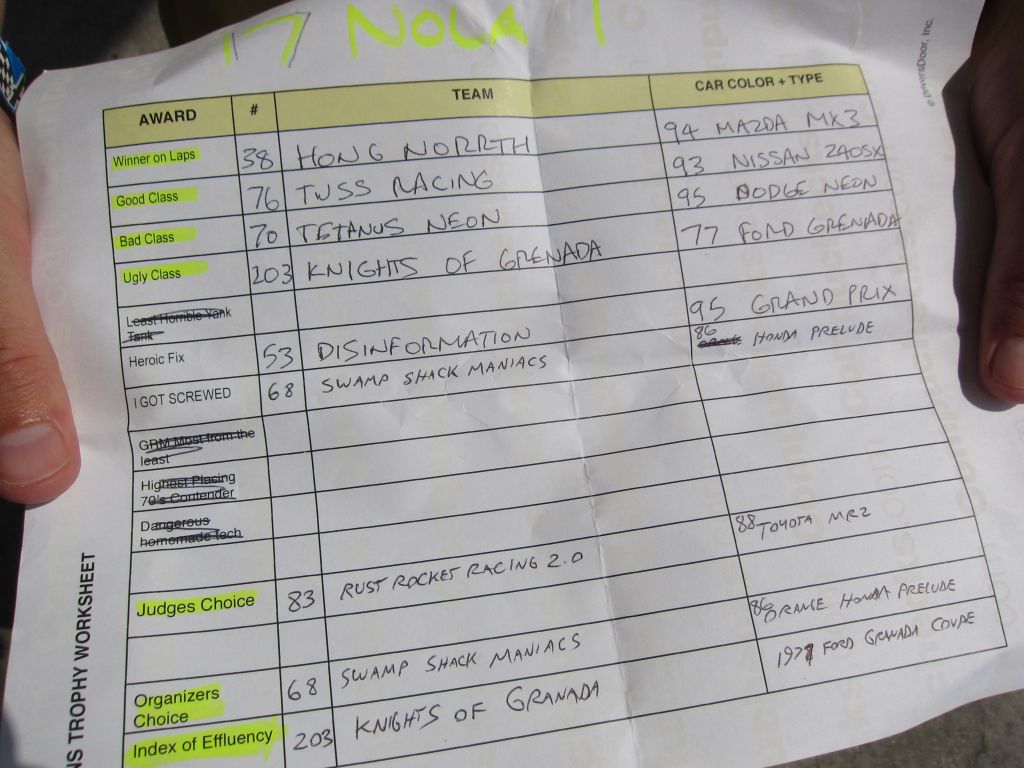 17 NOLA 1
© DriversDoor, Inc.
AWARD # TEAM CAR COLOR + TYPE
Winner on Laps 38 HONG NORRTH 94 MAZDA MX3
Good Class 76 TUSS RACING 93 NISSAN 240SX
Bad Class 70 TETANUS NEON 95 DODGE NEON
Ugly Class 203 KNIGHTS OF GRENADA 77 FORD GRENADA
Least Horrible Yank
Tank
Heroic Fix 53 DISINFORMATION 95 GRAND PRIX
I GOT SCREWED 68 SWAMP SHACK MANIACS 86 HONDA PRELUDE
GRM Most from the
least
Highest Placing
70's Contender
Dangerous
homemade tech
Judges Choice 83 RUST ROCKET RACING 2.0 88 TOYOTA MR2
Organizers
Choice 68 SWAMP SHACK MANIACS 86 ORANGE HONDA PRELUDE
Index of Effluency 203 KNIGHTS OF GRANADA 1977 FORD GRANADA COUPE
NS TROPHY WORKSHEET